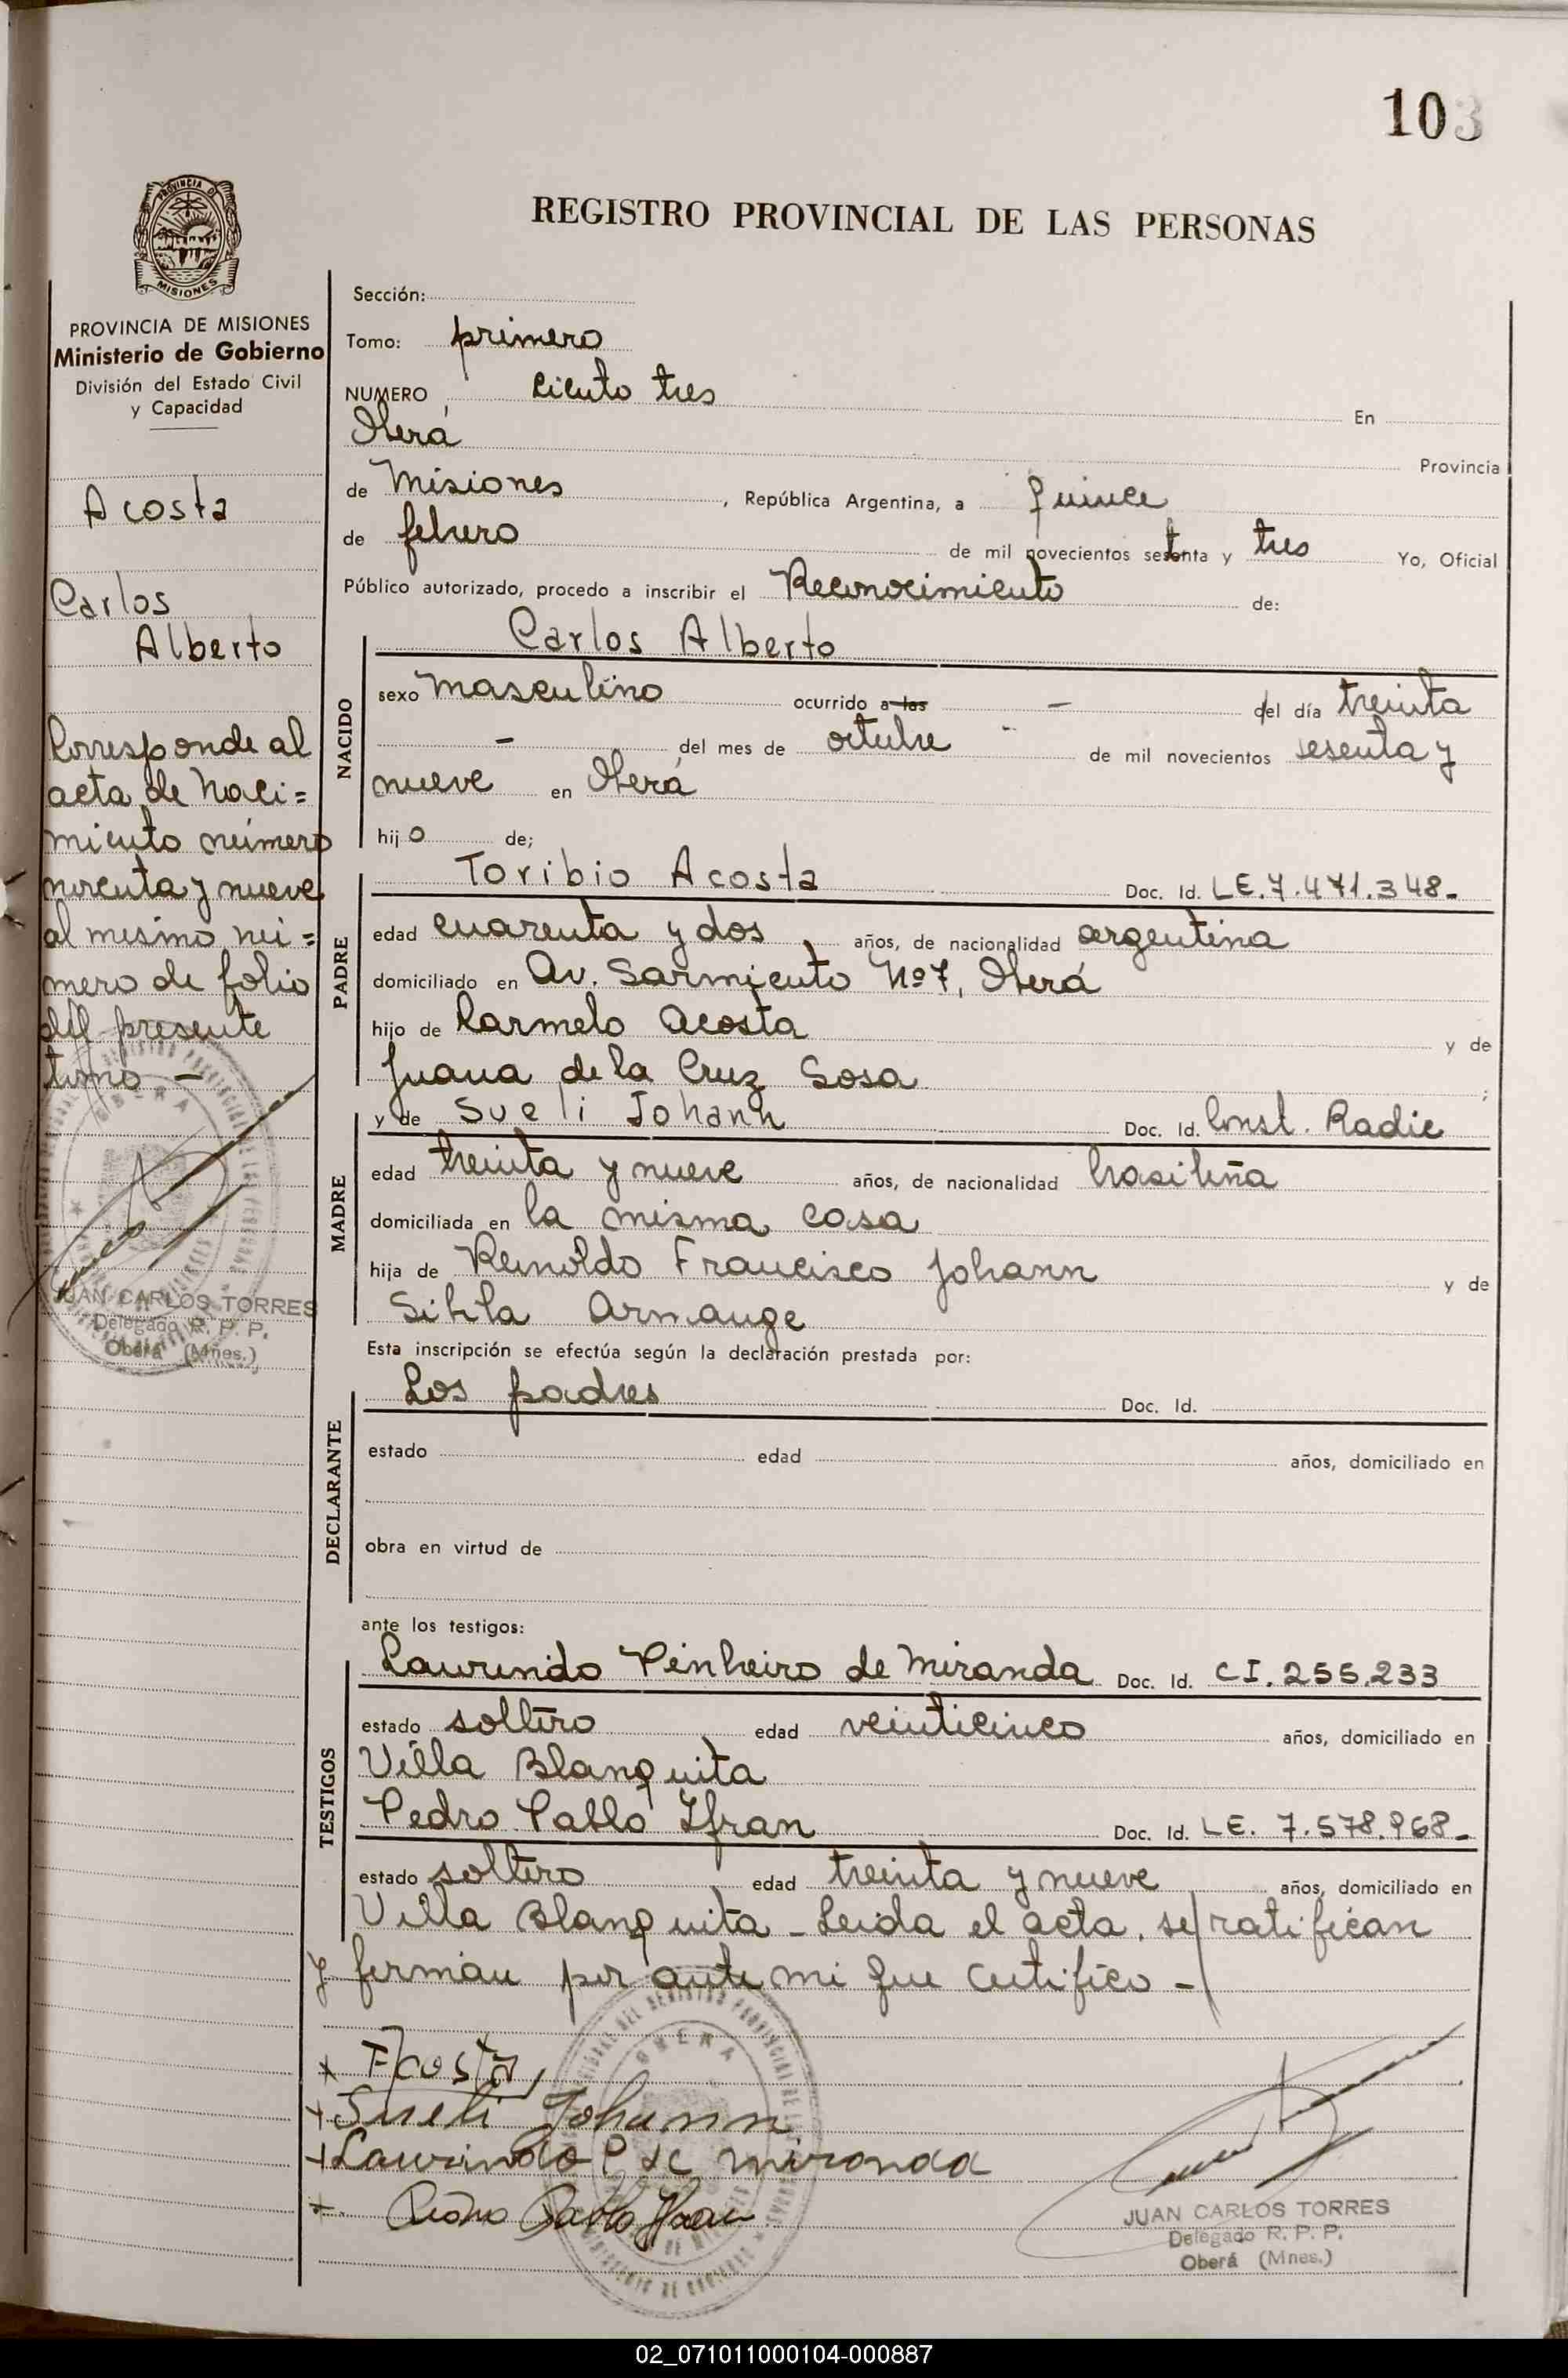 103
REGISTRO PROVINCIAL DE LAS PERSONAS
PROVINCIA DE MISIONES
Ministerio de Gobierno
División del Estado Civil
y Capacidad
Acosta
Carlos
Alberto
Corresponde al
acta de Naci=
miento número
noventa y nueve
al mismo nú=
mero de folio
del presente
tomo –
JUAN CARLOS TORRES
Delegado R. P. P.
Oberá (Mnes.)
Sección:
Tomo: primero
NUMERO ciento tres En
Oberá Provincia
de Misiones, República Argentina, a quince
de febrero de mil novecientos setenta y tres Yo, Oficial
Público autorizado, procedo a inscribir el Reconocimiento de:
NACIDO
Carlos Alberto
sexo masculino ocurrido a las – del día treinta
– del mes de octubre de mil novecientos sesenta y
nueve en Oberá
hijo de;
PADRE
Toribio Acosta Doc. Id. LE.7.471.348-
edad cuarenta y dos años, de nacionalidad argentina
domiciliado en Av. Sarmiento Nº7, Oberá
hijo de Carmelo Acosta y de
Juana de la Cruz Sosa ;
MADRE
y de Sueli Johann Doc. Id. Const. Radic
edad treinta y nueve años, de nacionalidad brasileña
domiciliada en la misma casa
hija de Reinoldo Francisco Johann y de
Sibla Armange
Esta inscripción se efectúa según la declaración prestada por:
DECLARANTE
Los padres Doc. Id.
estado edad años, domiciliado en
obra en virtud de
ante los testigos:
TESTIGOS
Laurindo Pinheiro de Miranda Doc. Id. CI.255.233
estado soltero edad veinticinco años, domiciliado en
Villa Blanquita
Pedro Pablo Ifran Doc. Id. LE. 7.578.968-
estado soltero edad treinta y nueve años, domiciliado en
Villa Blanquita - Leida el acta, se ratifican
y firman por ante mi que certifico -
+ Acosta
+ Sueli Johann
+ Laurindo P de miranda
+ Pedro Pablo Ifran
JUAN CARLOS TORRES
Delegado R. P. P.
Oberá (Mnes.)
02_071011000104-000887